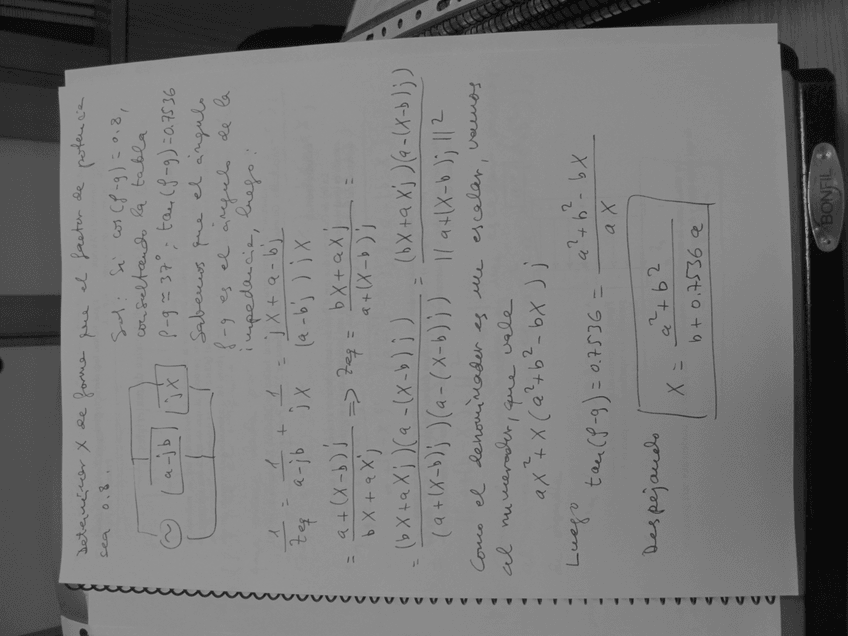 Determinar X de forma que el factor de potencia
sea 0.8.
Sol: Si cos(φ-g) = 0.8,
consultando la tabla
φ-g = 37°; tan(φ-g) = 0.7536
Sabemos que el ángulo
φ-g es el ángulo de la
impedancia, luego:
~ a-jb jX
1/Zeq = 1/(a-jb) + 1/(jX) = (jX+a-bj)/((a-bj)jX)
= (a+(X-b)j)/(bX+aXj) => Zeq = (bX+aXj)/(a+(X-b)j) =
= (bX+aXj)(a-(X-b)j)/((a+(X-b)j)(a-(X-b)j)) = (bX+aXj)(a-(X-b)j)/||a+(X-b)j||²
Como el denominador es un escalar, vamos
al numerador, que vale
aX²+X(a²+b²-bX)j
Luego
tan(φ-g) = 0.7536 = (a²+b²-bX)/(aX)
Despejando
X = (a²+b²)/(b+0.7536a)
BONFIL